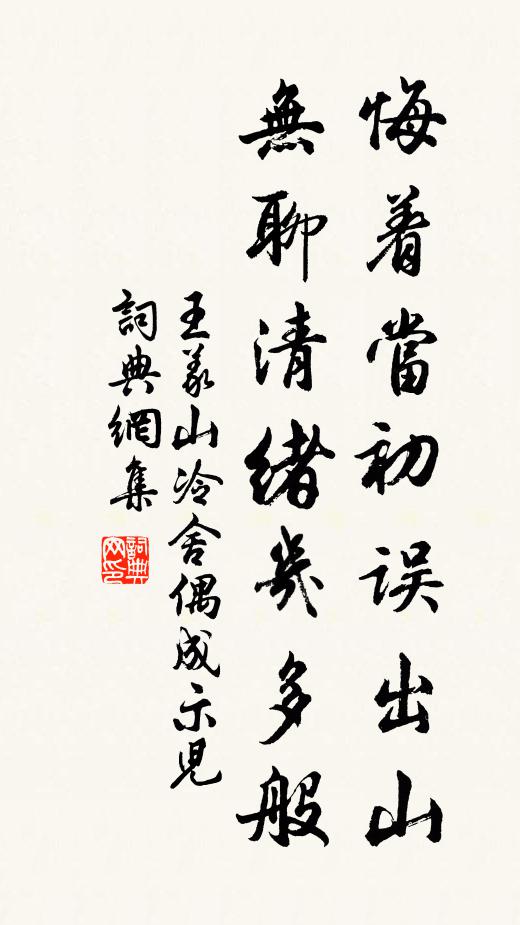 悔着當初误出山
無聊清绪幾多般
王义山冷舍偶成示児
詞典網集
詞典网印